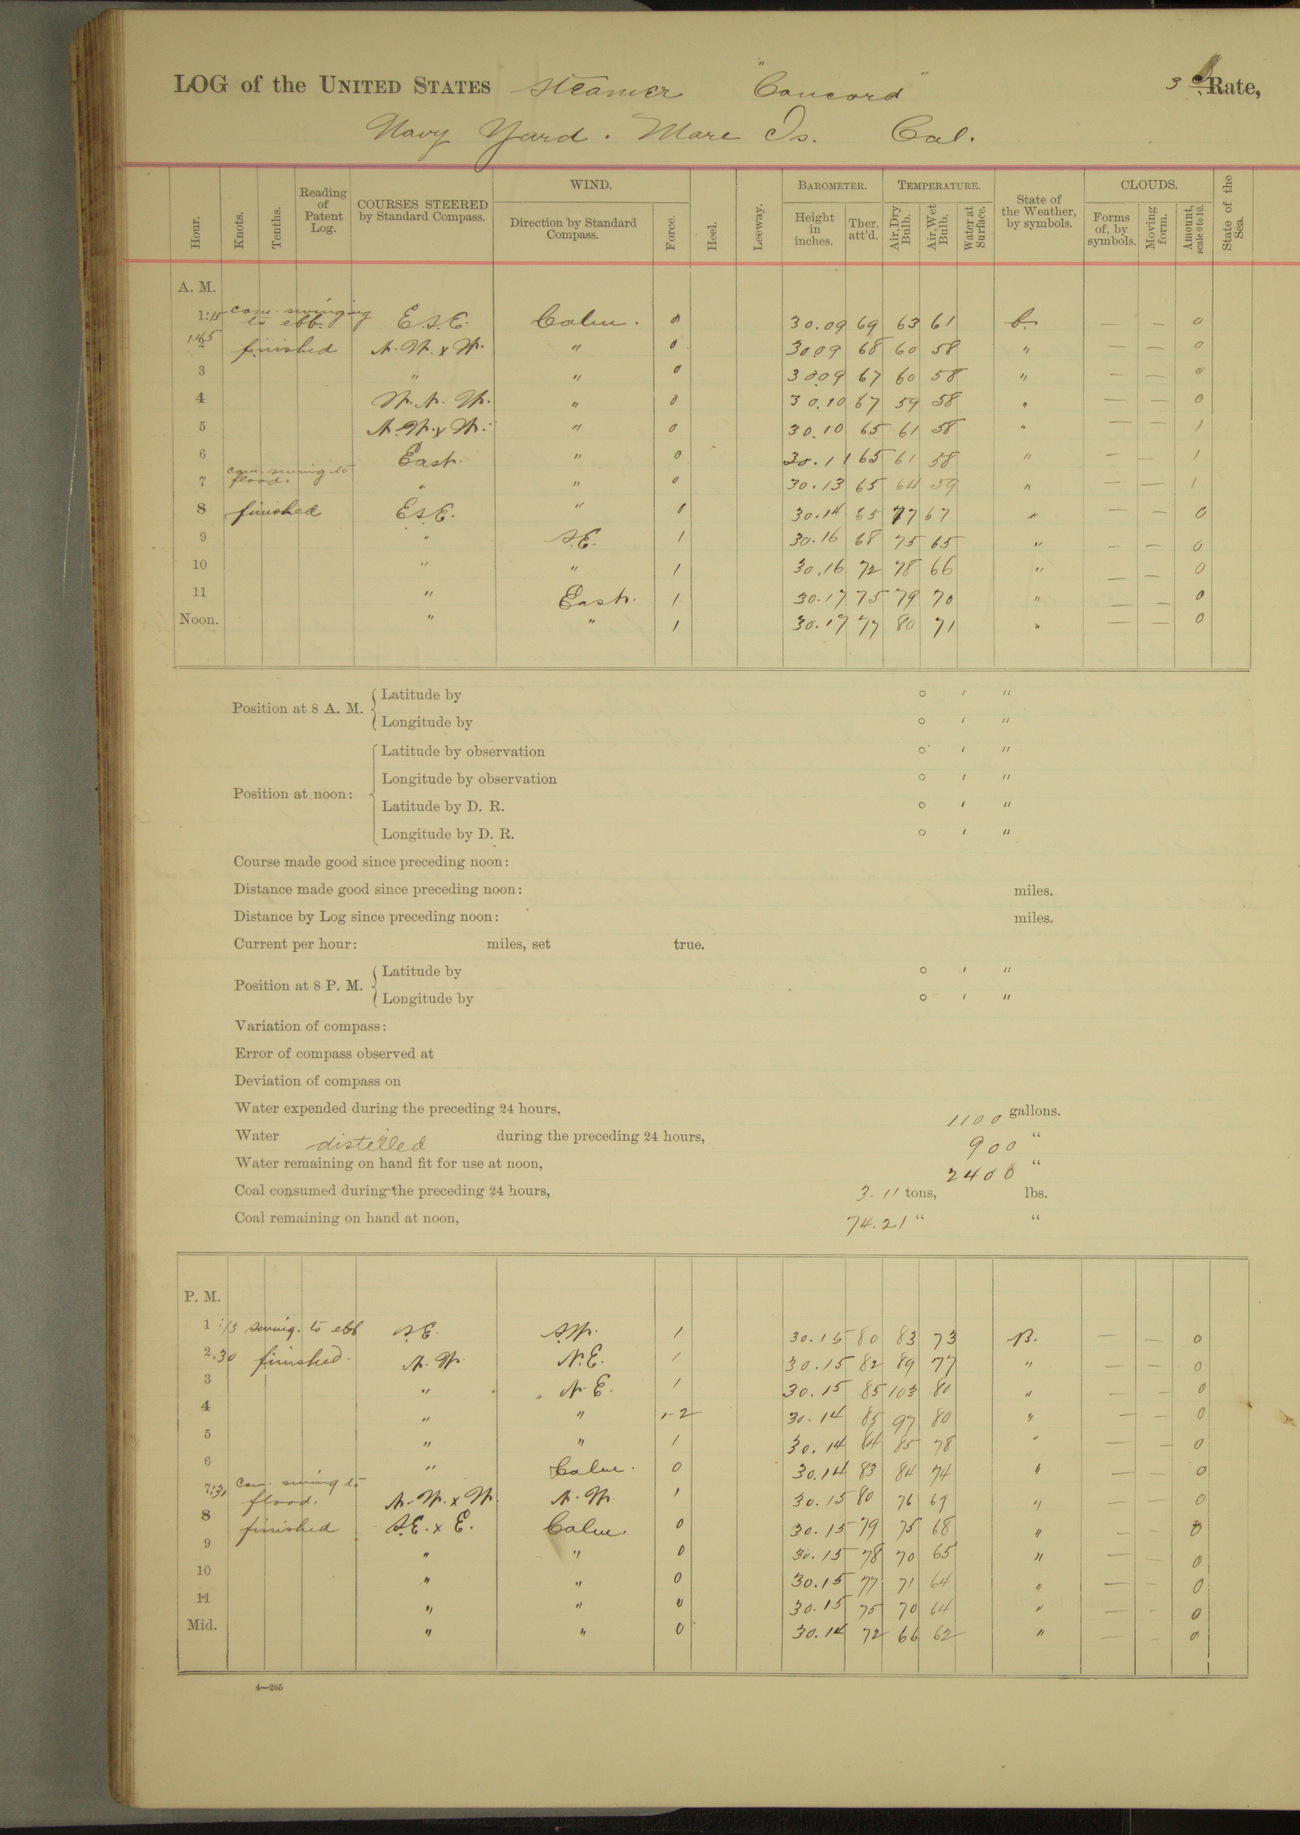 LOG of the UNITED STATES Steamer "Concord" 3d Rate,
Navy Yard. Mare Is. Cal.
Hour. Knots. Tenths. Reading of Patent Log. COURSES STEERED by Standard Compass. WIND. Direction by Standard Compass. Force. Heel. Leeway. BAROMETER. Height in inches. Ther. att'd. TEMPERATURE. Air, Dry Bulb. Air, Wet Bulb. Water at Surface. State of the Weather, by symbols. CLOUDS. Forms of, by symbols. Moving form. Amount, scale 0 to 10. State of the Sea.
A. M.
1:15 com. swinging to ebb. E.S.E. Calm. 0 30.09 69 63 61 b. — — 0
1.45 2 finished N.W. x W. " 0 30 09 68 60 58 " — — 0
3 " " 0 30.09 67 60 58 " — — 0
4 W.N.W. " 0 30.10 67 59 58 " — — 0
5 N.W. x W. " 0 30.10 65 61 58 " — — 1
6 East. " 0 30.11 65 61 58 " — — 1
7 com. swing to flood. " " 0 30.13 65 64 59 " — — 1
8 finished E.S.E. " 0 30.14 65 77 67 " — — 0
9 " S.E. 1 30.16 68 75 65 " — — 0
10 " " 1 30.16 72 78 66 " — — 0
11 " East. 1 30.17 75 79 70 " — — 0
Noon. " " 1 30.17 77 80 71 " — — 0
Position at 8 A. M. Latitude by ° ' "
Longitude by ° ' "
Position at noon: Latitude by observation ° ' "
Longitude by observation ° ' "
Latitude by D. R. ° ' "
Longitude by D. R. ° ' "
Course made good since preceding noon:
Distance made good since preceding noon: miles.
Distance by Log since preceding noon: miles.
Current per hour: miles, set true.
Position at 8 P. M. Latitude by ° ' "
Longitude by ° ' "
Variation of compass:
Error of compass observed at
Deviation of compass on
Water expended during the preceding 24 hours, 1100 gallons.
Water distilled during the preceding 24 hours, 900 "
Water remaining on hand fit for use at noon, 2400 "
Coal consumed during the preceding 24 hours, 3.11 tons, lbs.
Coal remaining on hand at noon, 74.21 " "
P. M.
1:15 swing. to ebb S.E. S.W. 1 30.15 80 83 73 B. — — 0
2.30 finished. N.W. N.E. 1 30.15 82 89 77 " — — 0
3 " N.E. 1 30.15 85 103 80 " — — 0
4 " " 1-2 30.14 85 97 80 " — — 0
5 " " 1 30.14 84 85 78 " — — 0
6 " Calm. 0 30.14 83 84 74 " — — 0
7:31 com. swing to flood. N.W. x W. N.W. 1 30.15 80 76 69 " — — 0
8 finished S.E. x E. Calm. 0 30.15 79 75 68 " — — 0
9 " " 0 30.15 78 70 65 " — — 0
10 " " 0 30.15 77 71 64 " — — 0
11 " " 0 30.15 75 70 64 " — — 0
Mid. " " 0 30.14 72 66 62 " — — 0
4—205